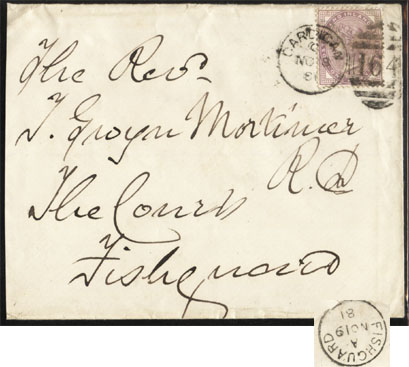 CARDIGAN
C
NO 18
81
164
The Revd
T. Gwyn Mortimer
R. D
The Court
Fishguard
FISHGUARD
A
NO 19
81